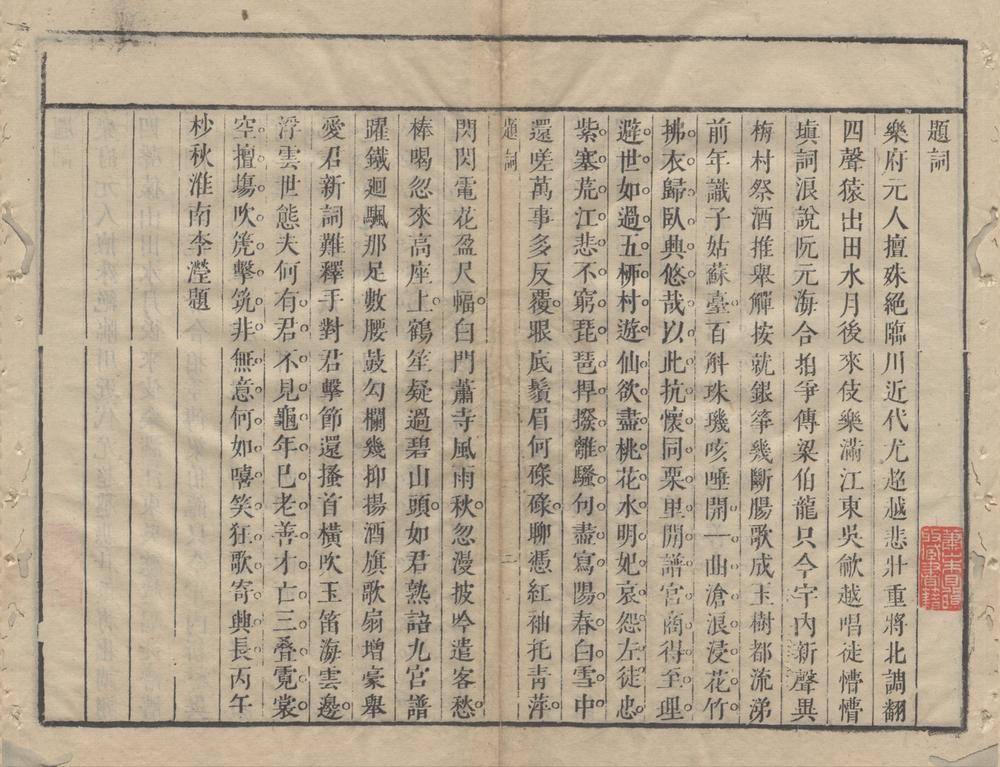 題詞
樂府元人擅殊絕臨川近代尤超越悲壯重將北調翻
四聲猿出田水月後來伎樂滿江東吳歈越唱徒懵懵
塡詞浪說阮元海合拍爭傳梁伯龍只今宇內新聲異
梅村祭酒推舉觶按就銀箏幾斷腸歌成玉樹都流涕
前年識子姑蘇臺百斛珠璣咳唾開一曲滄浪浸花竹
拂衣歸臥興悠哉以此抗懷同栗里閒譜宮商得至理
避世如過五栁村遊仙欲盡桃花水明妃哀怨左徒忠
紫塞荒江悲不窮琵琶捍撥離騷句盡寫陽春白雪中
還嗟萬事多反覆眼底鬚眉何碌碌聊憑紅袖托青萍
題詞
二
閃閃電花盈尺幅白門蕭寺風雨秋忽漫披吟遣客愁
棒喝忽來高座上鶴笙疑過碧山頭如君熟諳九宮譜
躍鐵廻颿那足數腰鼓勾欄幾抑揚酒旗歌扇增豪舉
愛君新詞難釋手對君擊節還搔首橫吹玉笛海雲邊
浮雲世態夫何有君不見龜年已老善才亡三叠霓裳
空擅塲吹箎擊筑非無意何如嘻笑狂歌寄興長丙午
杪秋淮南李瀅題